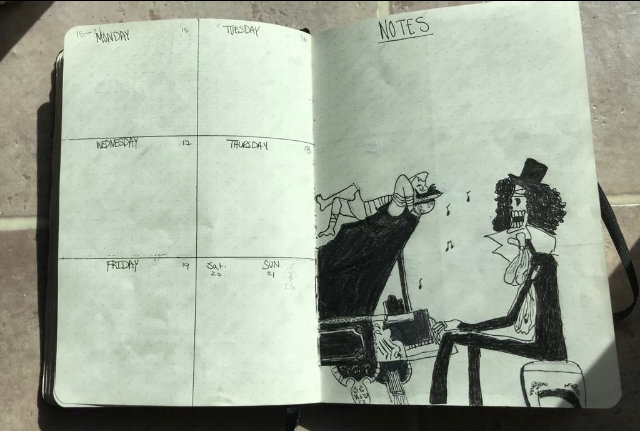 MONDAY 15
TUESDAY 16
WEDNESDAY 17
THURSDAY 18
FRIDAY 19
Sat. SUN
20 21
NOTES